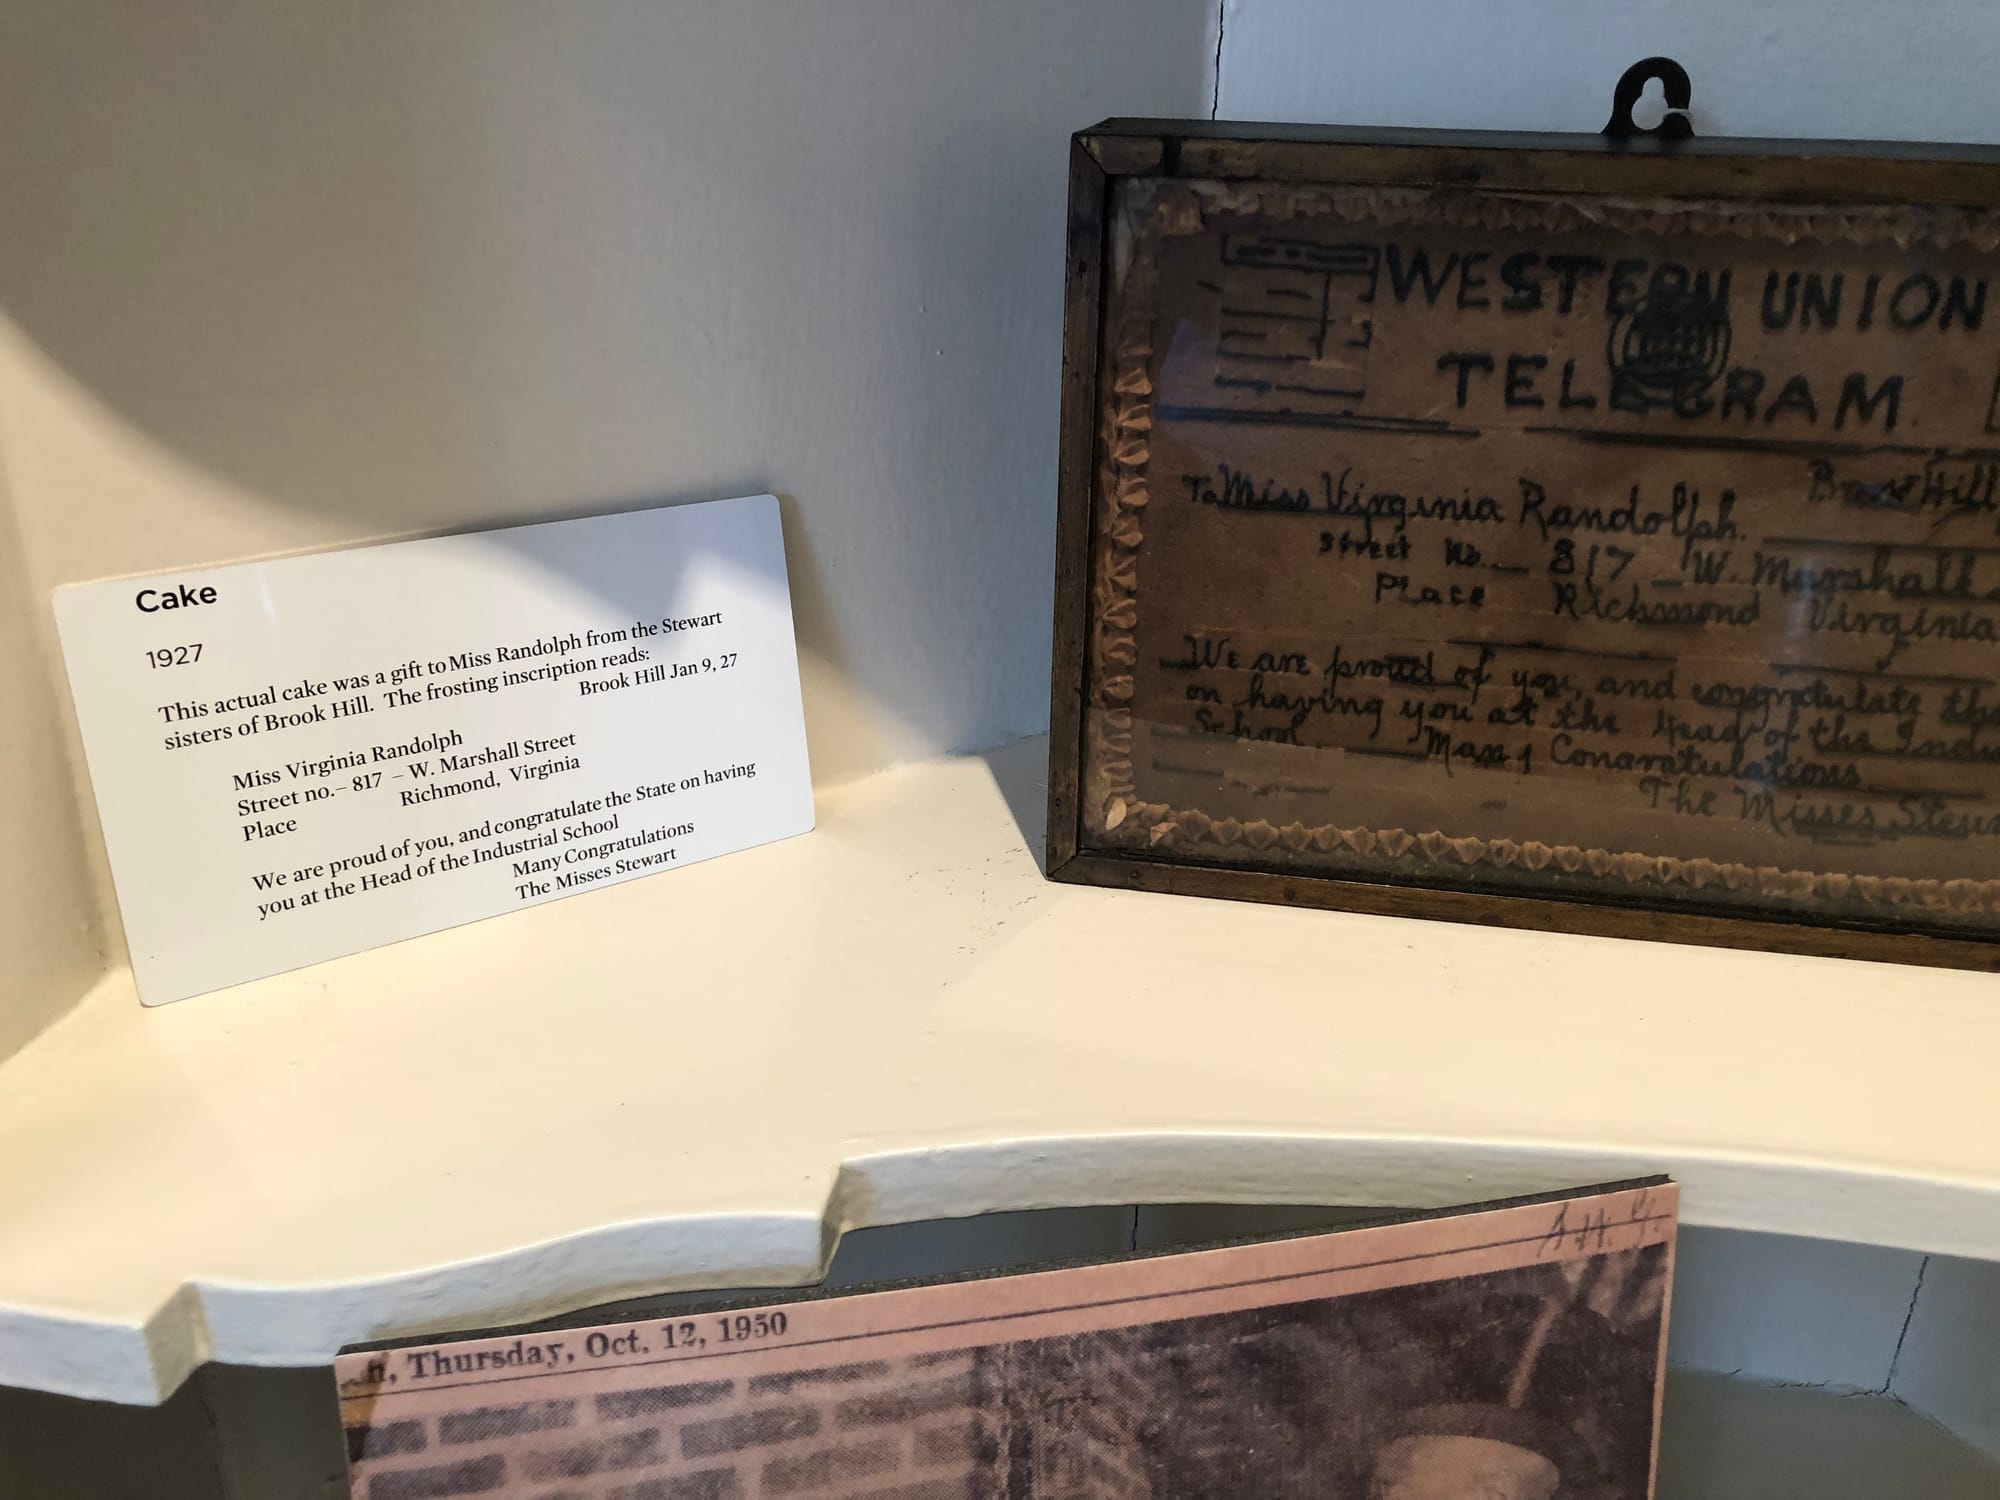 Cake
1927
This actual cake was a gift to Miss Randolph from the Stewart
sisters of Brook Hill. The frosting inscription reads:
Brook Hill Jan 9, 27
Miss Virginia Randolph
Street no.– 817 – W. Marshall Street
Place Richmond, Virginia
We are proud of you, and congratulate the State on having
you at the Head of the Industrial School
Many Congratulations
The Misses Stewart
WESTERN UNION
TELEGRAM
Hill
To Miss Virginia Randolph.
Street No. 817 W. Marshall
Place Richmond Virginia
We are proud of you, and congratulate
on having you at the Head of the
School. Many Congratulations
The Misses
Thursday, Oct. 12, 1950